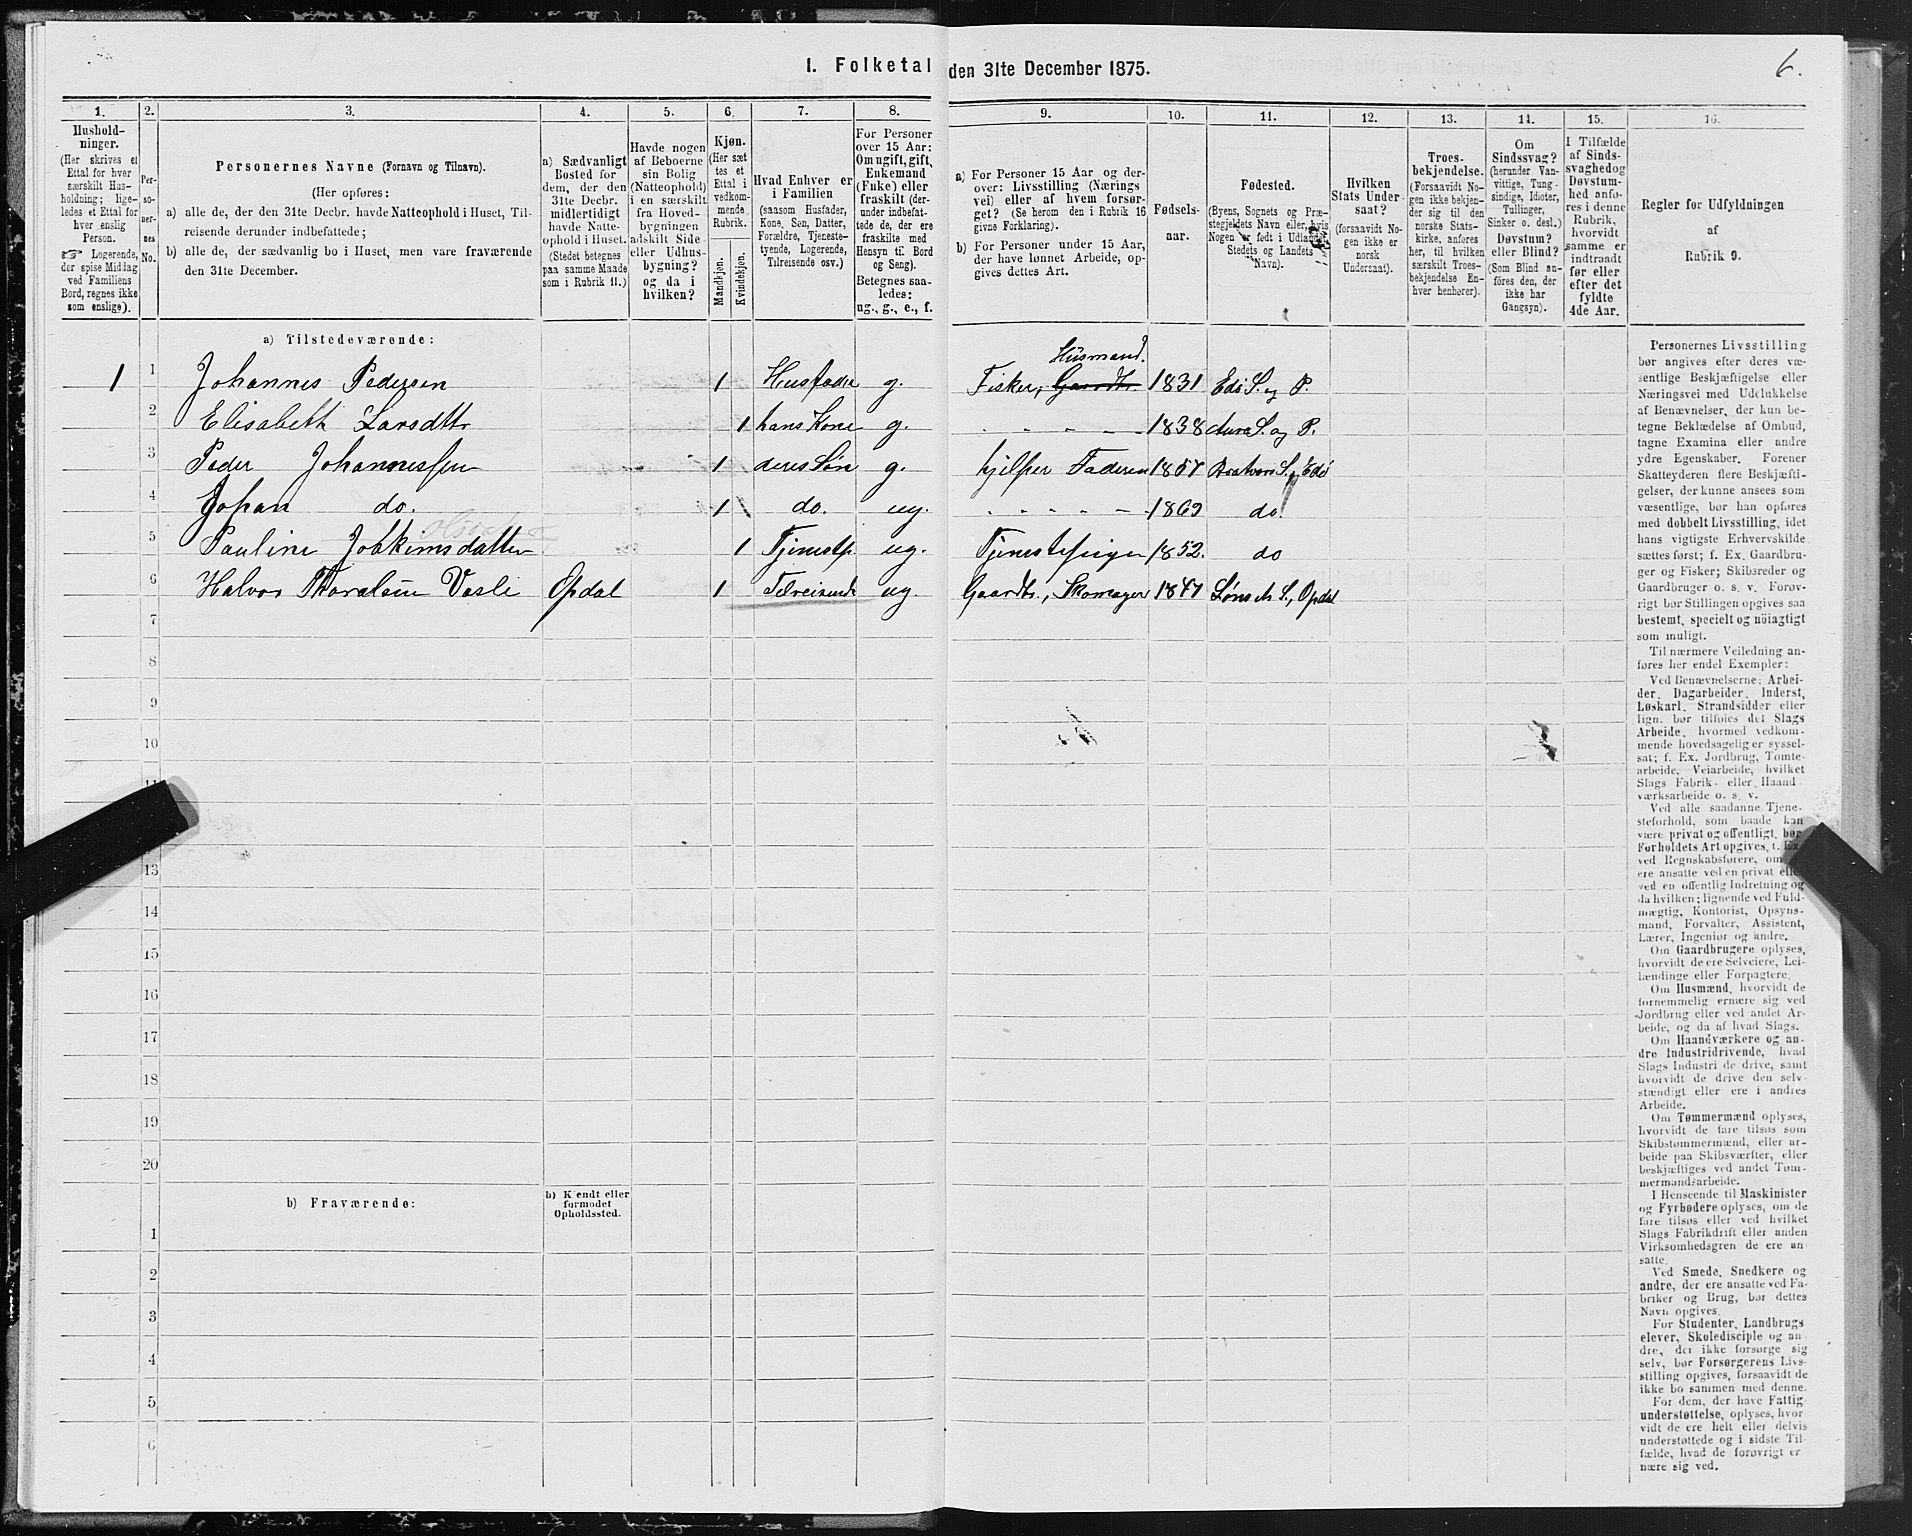 1. Folketal den 31te December 1875.
6.
1.
2.
3.
4.
5.
6.
7.
8.
9.
10.
11.
12.
13.
14.
15.
16.
Hushold-
ninger.
(Her skrives et
Ettal for hver
særskilt Hus-
holdning; lige-
ledes et Ettal for
hver enslig
Person.
☞ Logerende,
der spise Middag
ved Familiens
Bord, regnes ikke
som enslige).
Per-
so-
ner-
nes
No.
Personernes Navne (Fornavn og Tilnavn).
(Her opføres:
a) alle de, der den 31te Decbr. havde Natteophold i Huset, Til-
reisende derunder indbefattede;
b) alle de, der sædvanlig bo i Huset, men vare fraværende
den 31te December.
a) Sædvanligt
Bosted for
dem, der den
31te Decbr.
midlertidigt
havde Natte-
ophold i Huset.
(Stedet betegnes
paa samme Maade
som i Rubrik 11.)
Havde nogen
af Beboerne
sin Bolig
(Natteophold)
i en særskilt
fra Hoved-
bygningen
adskilt Side-
eller Udhus-
bygning?
og da i
hvilken?
Kjøn.
(Her sæt
tes et
Ettal i
vedkom-
mende
Rubrik.
Mandkjøn.
Kvindekjøn.
Hvad Enhver er
i Familien
(saasom Husfader,
Kone, Søn, Datter,
Forældre, Tjeneste-
tyende, Logerende,
Tilreisende osv.)
For Personer
over 15 Aar:
Om ugift, gift,
Enkemand
(Enke) eller
fraskilt (der-
under indbefat-
tede de, der ere
fraskilte med
Hensyn til Bord
og Seng).
Betegnes saa-
ledes:
ug., g., e., f.
a) For Personer 15 Aar og der-
over: Livsstilling (Nærings
vei) eller af hvem forsør-
get? (Se herom den i Rubrik 16
givne Forklaring).
b) For Personer under 15 Aar,
der have lønnet Arbeide, op-
gives dettes Art.
Fødsels-
aar.
Fødested.
(Byens, Sognets og Præ-
stegjeldets Navn eller, hvis
Nogen er født i Udlandet,
Stedets og Landets
Navn).
Hvilken
Stats Under-
saat?
(forsaavidt No-
gen ikke er
norsk
Undersaat).
Troes-
bekjendelse.
(Forsaavidt No-
gen ikke bekjen-
der sig til den
norske Stats-
kirke, anføres
her, til hvilken
særskilt Troes-
bekjendelse En-
hver henhører).
Om
Sindssvag?
(herunder Van-
vittige, Tung-
sindige, Idioter,
Tullinger,
Sinker o. desl.)
Døvstum?
eller Blind?
(Som Blind an-
føres den, der
ikke har
Gangsyn).
I Tilfælde
af Sinds-
svaghed og
Døvstum-
hed anfø-
res i denne
Rubrik,
hvorvidt
samme er
indtraadt
før eller
efter det
fyldte
4de Aar.
Regler for Udfyldningen
af
Rubrik 9.
a) Tilstedeværende:
1 1 Johannes Pedersen 1 Husfader g. Fisker, Gaardbr. Husmand. 1831 Edø S. og P.
2 Elisabeth Larsdtr 1 hans Kone g. - - - - - 1838 Aure S. og P.
3 Peder Johannessen 1 deres Søn g. hjelper Faderen 1857 Bratvær S., Edø
4 Johan do. 1 do. ug. - - - - - 1869 do.
5 Pauline Joakimsdatter 1 Tjenestp. ug. Tjenestepige 1852. do
6 Halvor Thoralsen Vasli Opdal 1 Tilreisende ug Gaardbr., Skomager 1847 Lønset S., Opdal
8
9
10
11
13
14
15
16
17
18
19
20
b) Fraværende:
b) Kendt eller
formodet
Opholdssted.
1
2
3
4
5
6
Personernes Livsstilling
bør angives efter deres væ-
sentlige Beskjæftigelse eller
Næringsvei med Udelukkelse
af Benævnelser, der kun be-
tegne Beklædelse af Ombud,
tagne Examina eller andre
ydre Egenskaber. Forener
Skatteyderen flere Beskjæfti-
gelser, der kunne ansees som
væsentlige, bør han opføres
med dobbelt Livsstilling, idet
hans vigtigste Erhvervskilde
sættes først; f. Ex. Gaardbru-
ger og Fisker; Skibsreder og
Gaardbruger o. s. v. Forøv-
rigt bør Stillingen opgives saa
bestemt, specielt og nöiagtigt
som muligt.
Til nærmere Veiledning an-
føres her endel Exempler:
Ved Benævnelserne: Arbei-
der, Dagarbeider, Inderst,
Løskarl, Strandsidder eller
lign. bør tilføies det Slags
Arbeide, hvormed vedkom-
mende hovedsagelig er syssel-
sat; f. Ex. Jordbrug, Tomte-
arbeide, Veiarbeide, hvilket
Slags Fabrik- eller Haand
værksarbeide o. s. v.
Ved alle saadanne Tjene-
steforhold, som baade kan
være privat og offentligt, bør
Forholdets Art opgives, f. Ex.
ved Regnskabsførere, om de
ere ansatte ved en privat eller
ved en offentlig Indretning og
da hvilken; lignende ved Fuld-
mægtig, Kontorist, Opsyns-
mand, Forvalter, Assistent,
Lærer, Ingeniør og andre.
Om Gaardbrugere oplyses,
hvorvidt de ere Selveiere, Lei-
lændinge eller Forpagtere.
Om Husmænd, hvorvidt de
fornemmelig ernære sig ved
Jordbrug eller ved andet Ar-
beide, og da af hvad Slags.
Om Haandværkere og an-
dre Industridrivende, hvad
Slags Industri de drive, samt
hvorvidt de drive den selv-
stændigt eller ere i andres
Arbeide.
Om Tømmermænd oplyses,
hvorvidt de fare tilsøs som
Skibstømmermænd, eller ar-
beide paa Skibsværfter, eller
beskjæftiges ved andet Tøm-
mermandsarbeide.
I Henseende til Maskinister
og Fyrbødere oplyses, om de
fare tilsøs eller ved hvilket
Slags Fabrikdrift eller anden
Virksomhedsgren de ere an-
satte.
Ved Smede, Snedkere og
andre, der ere ansatte ved Fa-
briker og Brug, bør dettes
Navn opgives.
For Studenter, Landbrugs
elever, Skoledisciple og an-
dre, der ikke forsørge sig
selv, bør Forsørgerens Livs-
stilling opgives, forsaavidt de
ikke bo sammen med denne.
For dem, der have Fattig-
understøttelse, oplyses, hvor-
vidt de ere helt eller delvis
understøttede og i sidste Til-
fælde, hvad de forøvrigt er
nære sig ved.